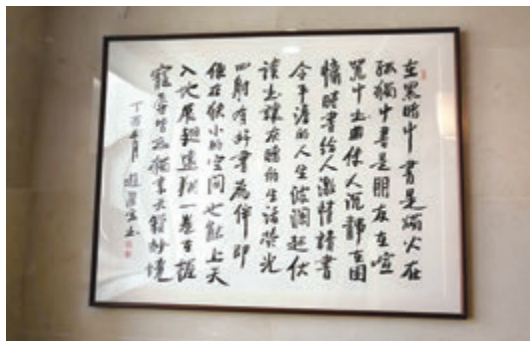 在黑暗中書是燭火在
孤獨中書是朋友在喧
中書使人沉靜在困
慵時書給人激情讀書
令平淡的人生波瀾起伏
讀書讓灰暗的生活光
四射有好書為伴即
使在狹小的空間也能上天
入地展翅遠翔一卷在握
寵辱皆忘獨享天籟妙境
丁酉 月 趙